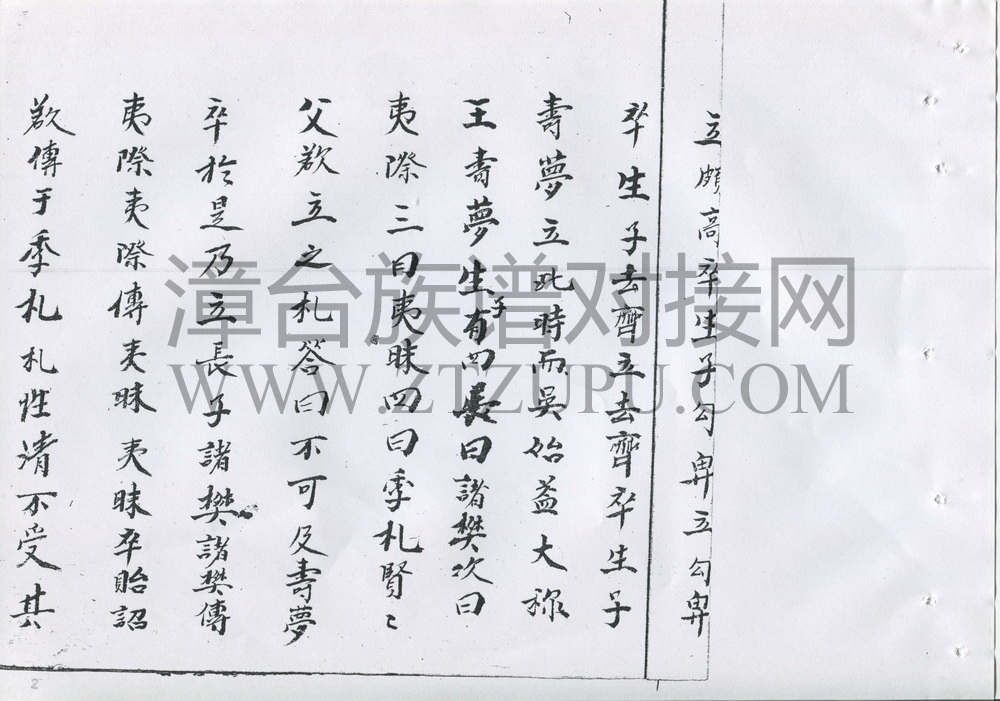 立頗高卒生子勾畀立勾畀
卒生子去齊立去齊卒生子
壽夢立此時而吳始益大称
王壽夢生子有四長曰諸樊次曰
夷際三曰夷昧四曰季札賢〻
父欲立之札答曰不可及壽夢
卒於是乃立長子諸樊諸樊傳
夷際夷際傳夷昧夷昧卒貽詔
欲傳于季札札性清不受其
漳台族谱对接网
WWW.ZTZUPU.COM
2